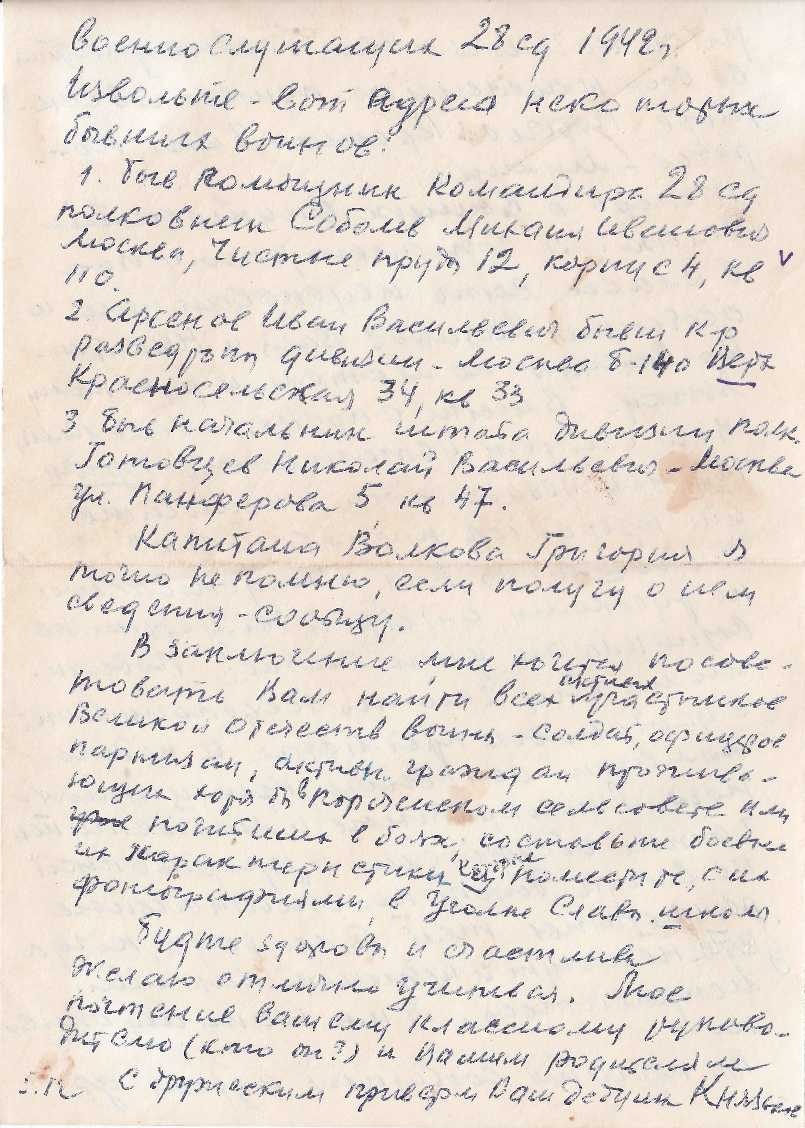 военнослужащих 28 сд 1942 г
Извольте - вот адреса некоторых
бывших воинов:
1. быв помощник Командира 28 сд
полковник Соболев Михаил Иванович
Москва, Чистые пруды 12, корпус 4, кв
110.
2. Арсенов Иван Васильевич бывш к-р
разведроты дивизии - Москва Б-140 Верх
Красносельская 34, кв 33
3 быв начальник штаба дивизии полк.
Готовцев Николай Васильевич - Москва
ул. Панферова 5 кв 47.
Капитана Волкова Григория я
точно не помню, если получу о нем
сведения - сообщу.
В заключение мне хочется посове-
товать Вам найти всех участников
Великой отечеств войны - солдат, офицеров
партизан, активн. граждан прожива-
ющих хотя бы в сельсовете или
погибших в боях, составьте боевые
их характеристики и поместите, с их
фотографиями, в Уголке Славы школы
Будте здоровы и счастливы
Желаю отлично учиться. Мое
почтение вашему классному руково-
дителю (кто он?) и Вашим родителям
С дружеским приветом Ваш